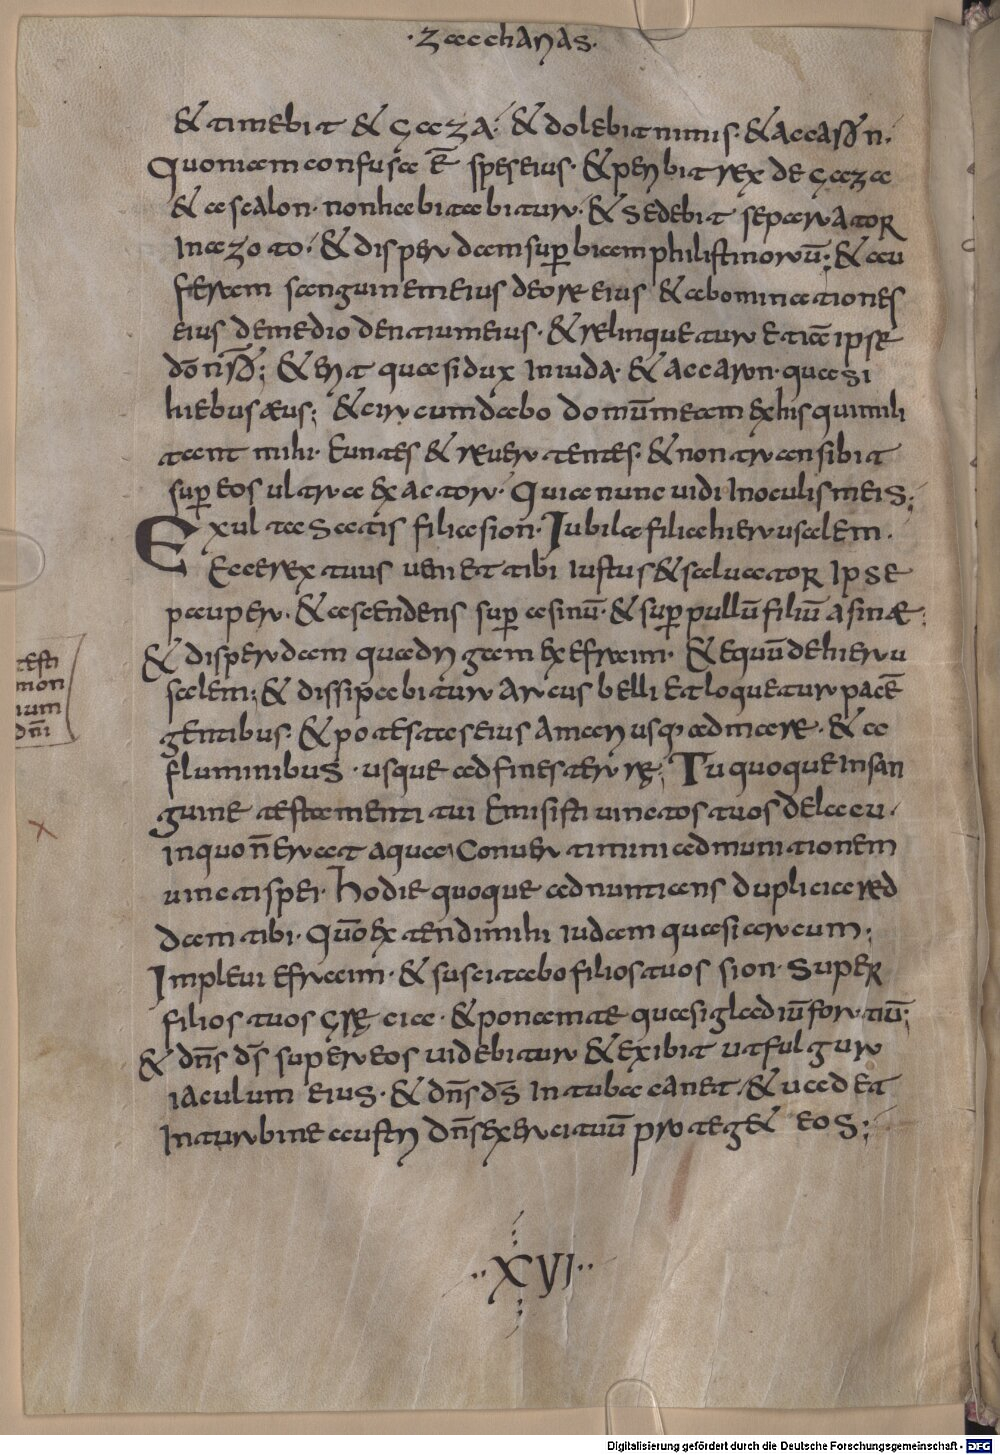 ·Zaccharias·
& timebit & Gaza· & dolebit nimis· & accaron·
Quoniam confusa ē spes eius· & peribit rex de Gaza
& ascalon· non habitabitur· & sedebit separator
In azoto· & disperdam sup̄biam philistinorū; & au
feram sanguinem eius de ore eius & abominationes
eius de medio dentium eius· & relinquetur & tiā ipse
dō nr̄o; & erit quasi dux In iuda· & accaron· quasi
hiebusæus; & circumdabo domūmeam ex his qui mili
tant mihi· Euntes & reuertentes· & non transibit
sup̄ eos ultra exactor· Quia nunc uidi In oculis meis;
Exulta satis filia sion· Iubila filia hierusalem·
Ecce rex tuus ueniet tibi iustus & saluator Ipse
pauper· & ascendens sup̄ asinū· & sup̄ pullū filiū asinæ;
& disperdam quadrigam ex efraim· & equū de hieru
salem; & dissipabitur arcus belli et loquetur pacē
gentibus· & potestas eius Amari usq; ad mare· & a
fluminibus· usque ad fines terrę; Tu quoque In san
guine testamenti tui emisisti uinctos tuos de lacu·
in quo n̄ erat aqua Conuertimini ad munitionem
uincti spei· hodie quoque adnuntians duplicia red
dam tibi· Quō extendi mihi iudam quasi arcum;
Impleui efraim· & suscitabo filios tuos sion· super
filios tuos gręcia· & ponam te quasi gladiū fortiū;
& dn̄s ds̄ super eos uidebitur & exibit ut fulgur
iaculum eius· & dn̄s ds̄ In tuba canet· & uadet
In turbine austri dn̄s exercituū proteg& eos;
testi
mon
ium
dn̄i
··XVI··
Digitalisierung gefördert durch die Deutsche Forschungsgemeinschaft - DFG